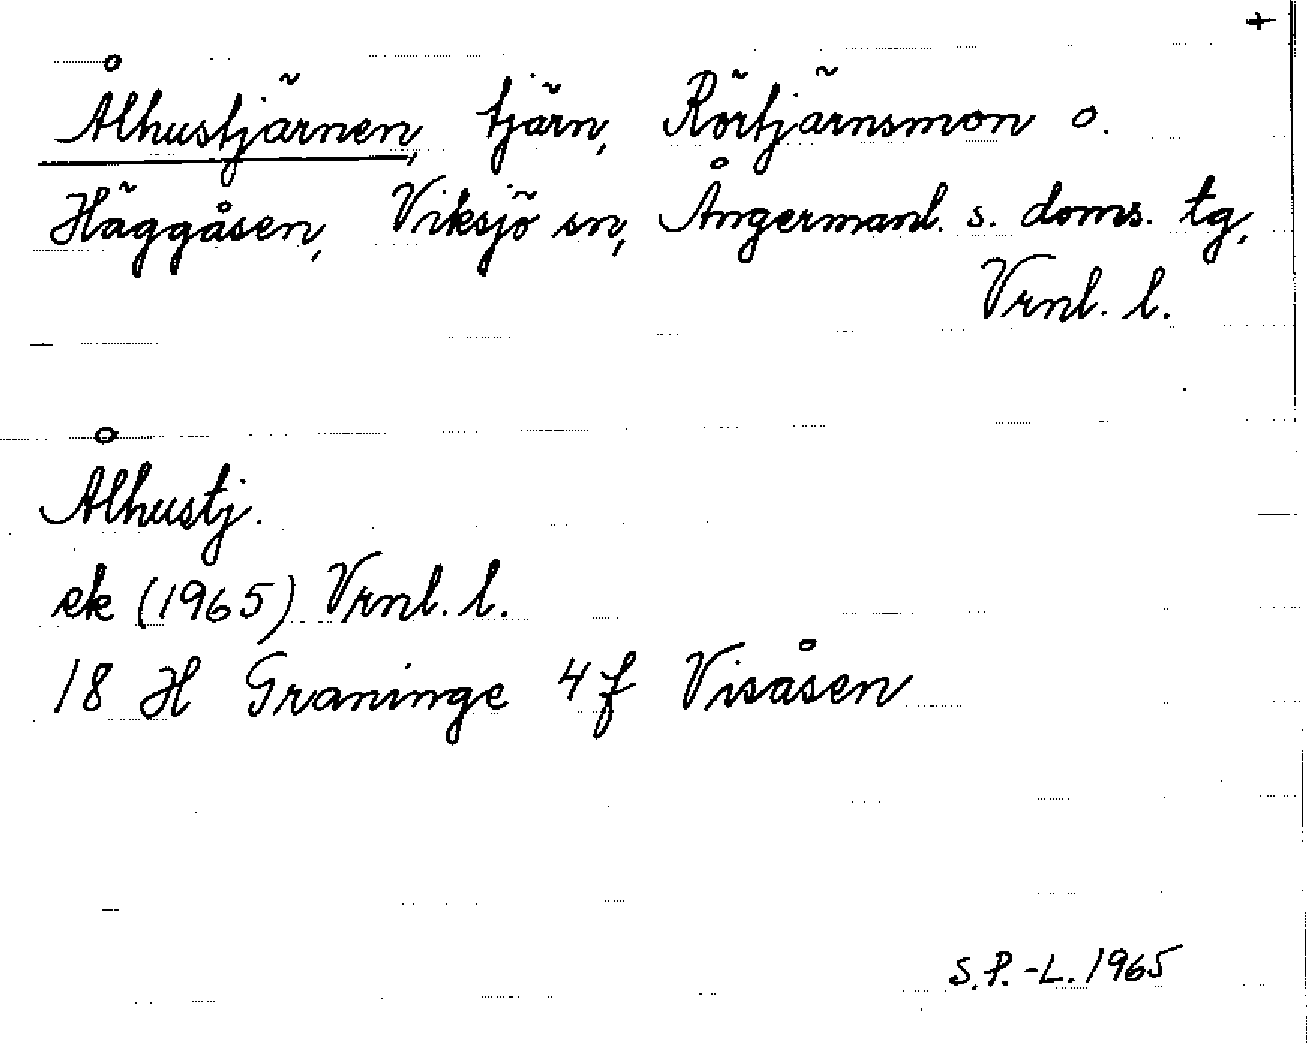 +
Ålhustjärnen, tjärn, Rörtjärnsmon o.
Häggåsen, Viksjö sn, Ångermanl. s. doms. tg,
Vrnl. l.
Ålhustj.
ek (1965) Vrnl. l.
18 H Graninge 4 f Visåsen
S.P.-L. 1965